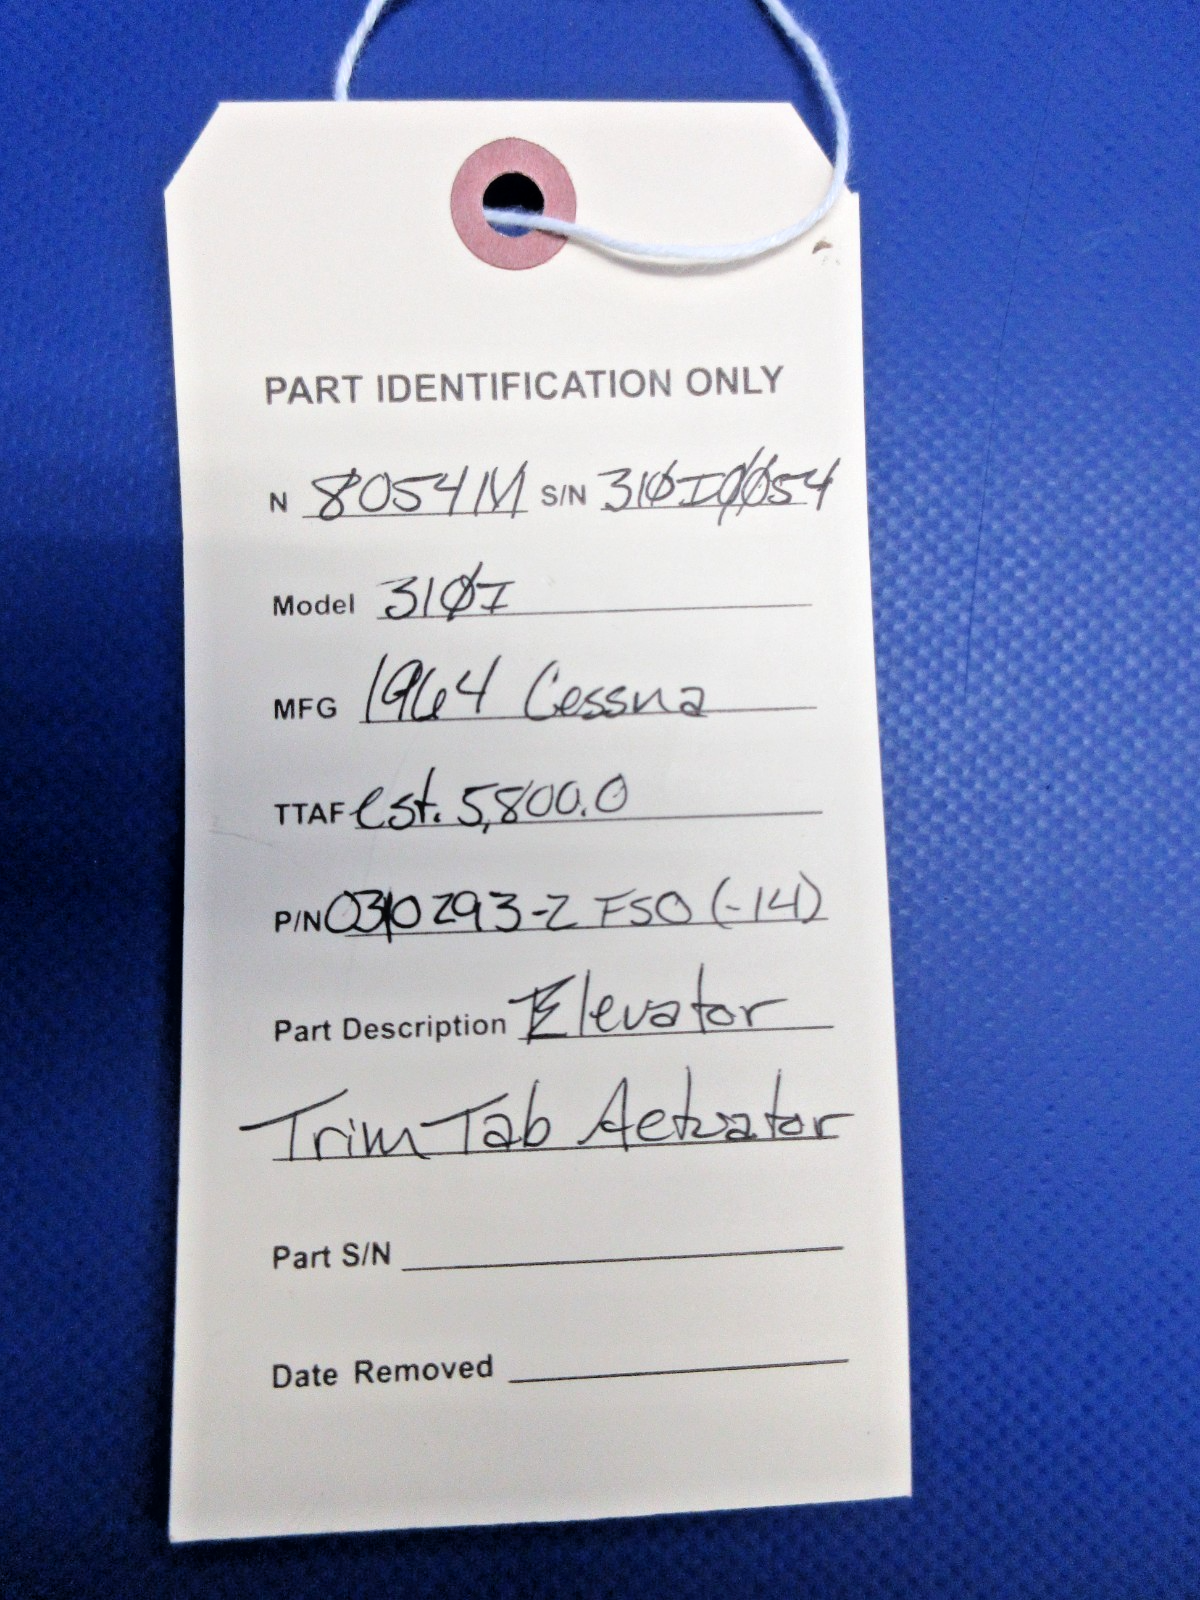 PART IDENTIFICATION ONLY
N 8054M S/N 310I0054
Model 310I
MFG 1964 Cessna
TTAF est. 5,800.0
P/N 0310293-2 FSO (-14)
Part Description Elevator
Trim Tab Actuator
Part S/N
Date Removed